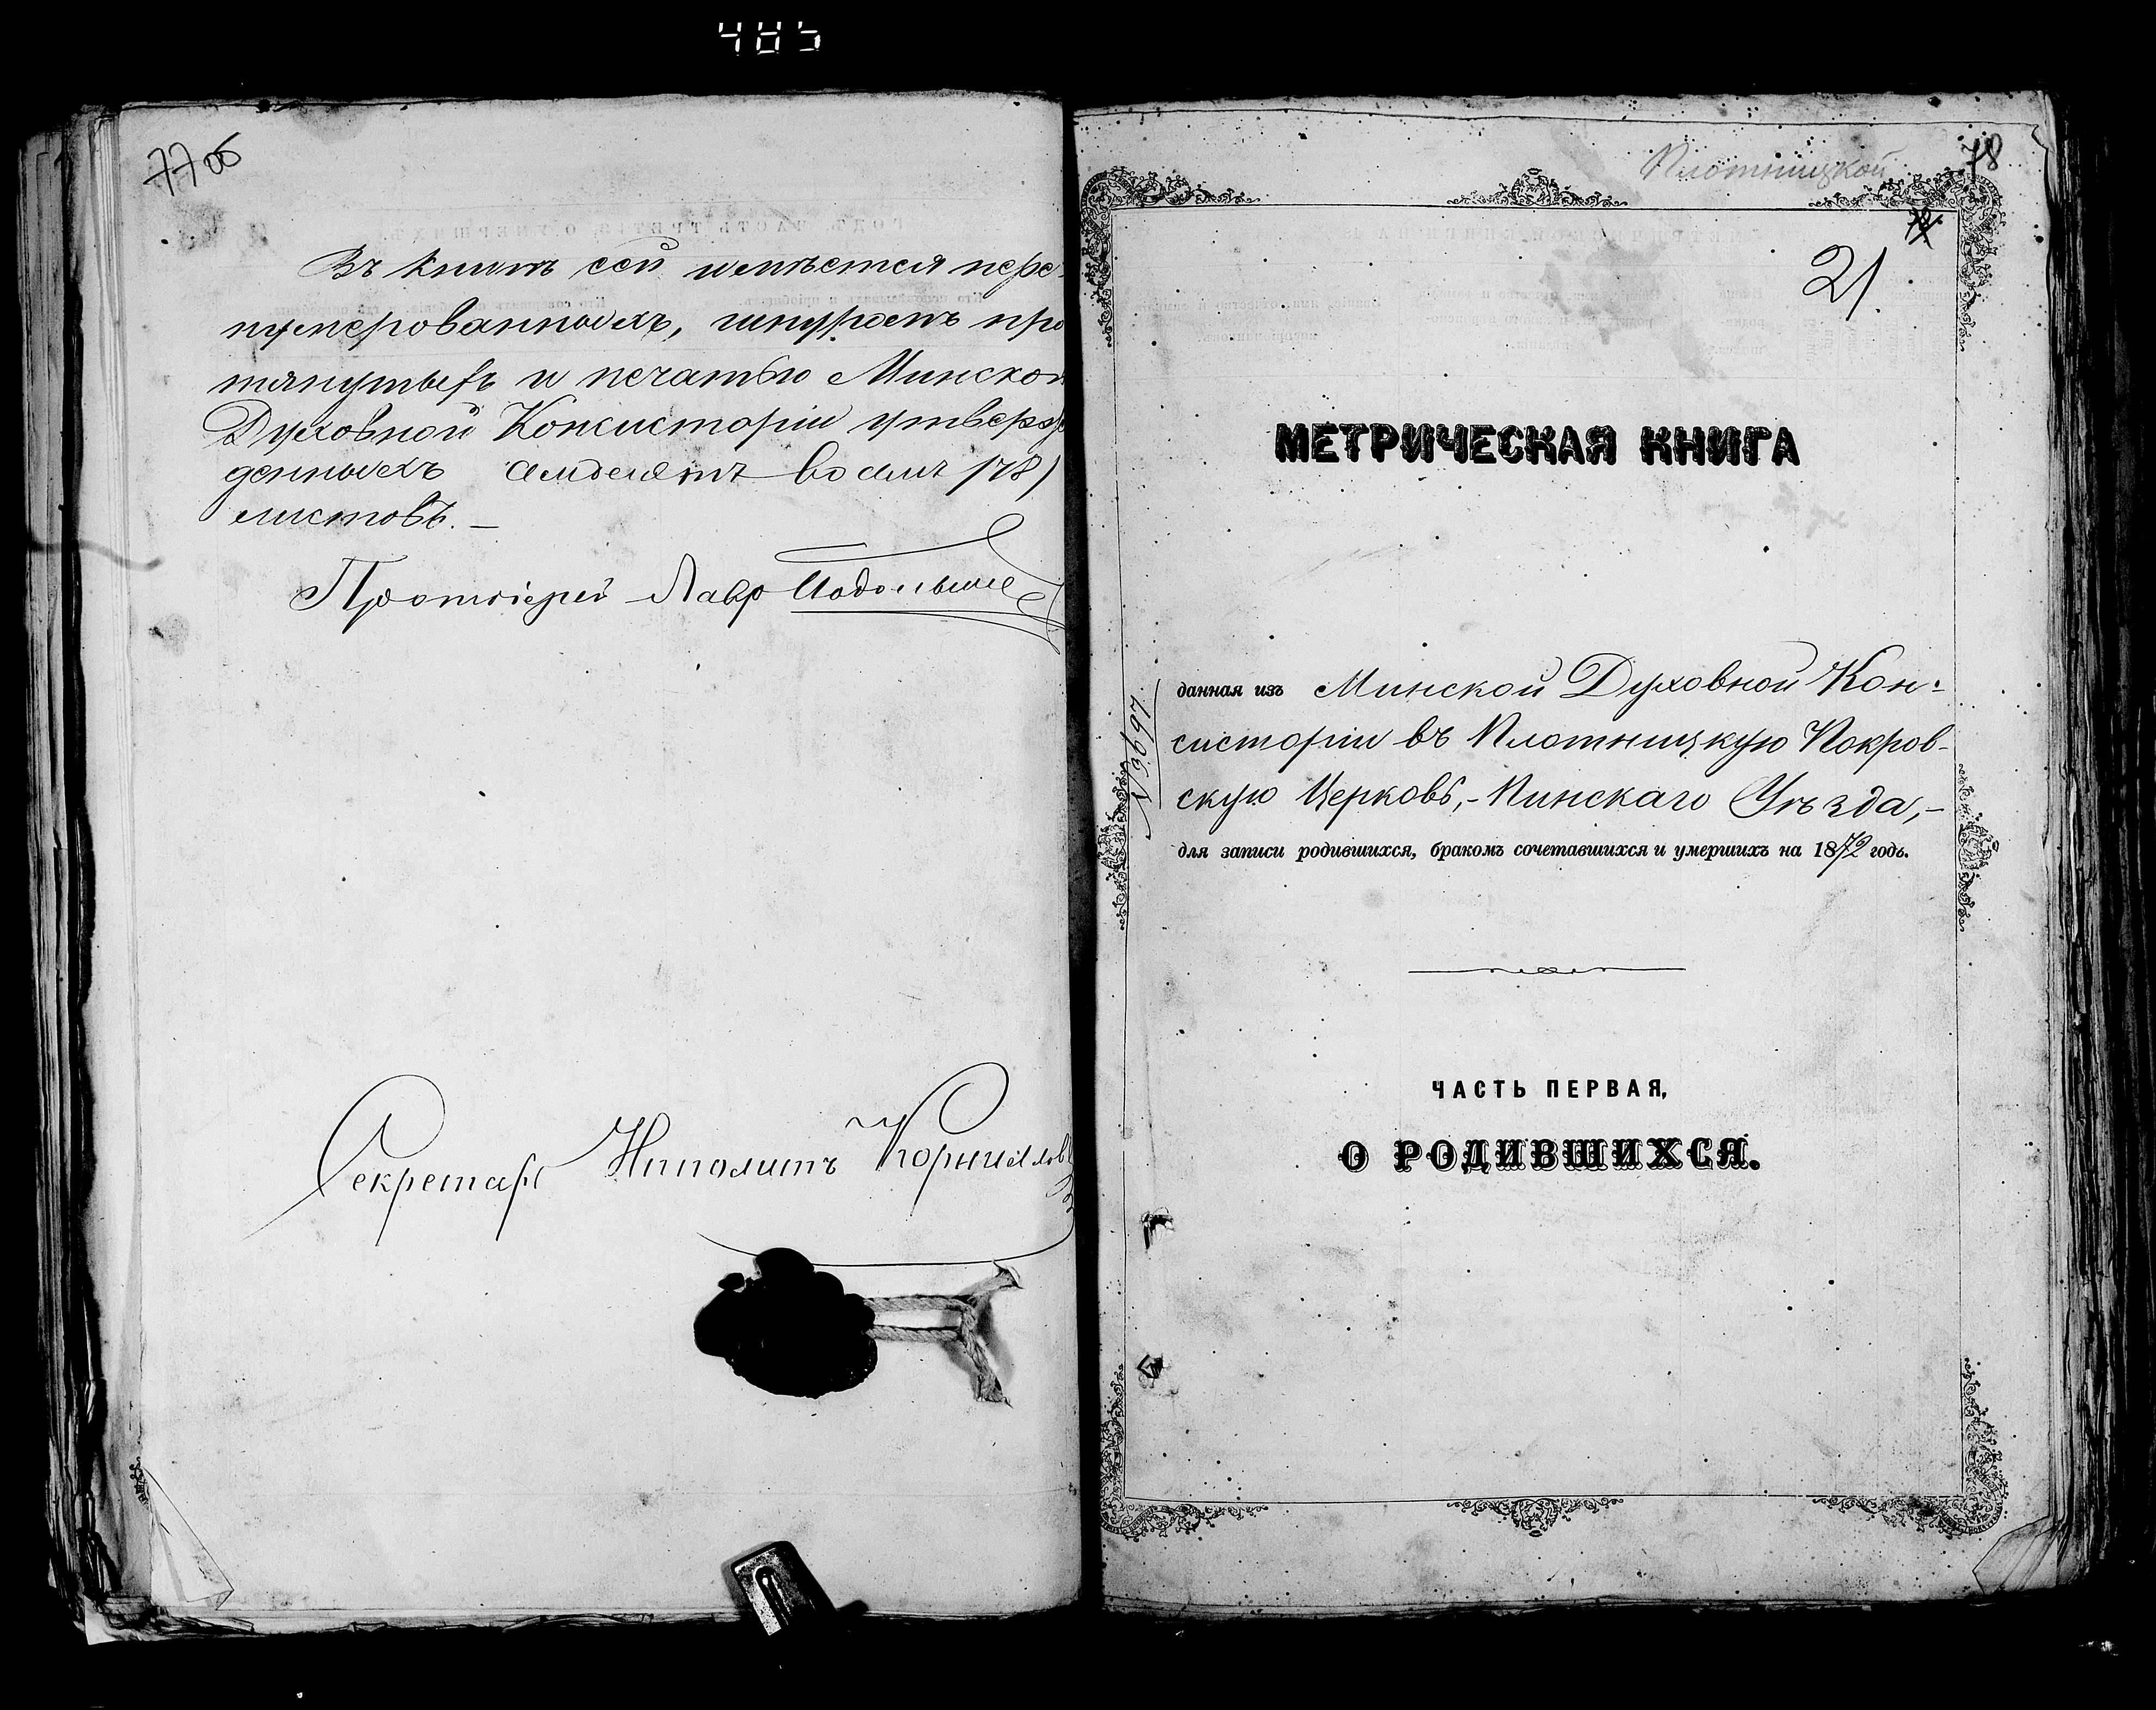 485
77 об
Въ книгѣ сей имѣется пере-
нумерованныхъ, шнуромъ про
тянутыхъ и печатью Минской
Духовной Консисторіи утверж
денныхъ семдесятъ восмь (78)
листовъ. —
Протоіерей Лавръ
Секретарь Ипполитъ Корниллов
Плотницкой
78
21.
МЕТРИЧЕСКАЯ КНИГА
№ 9697.
данная изъ Минской Духовной Кон-
систоріи въ Плотницкую Покров-
скую Церковь, - Пинскаго Уѣзда, -
для записи родившихся, бракомъ сочетавшихся и умершихъ на 1872 годъ.
ЧАСТЬ ПЕРВАЯ,
О РОДИВШИХСЯ.